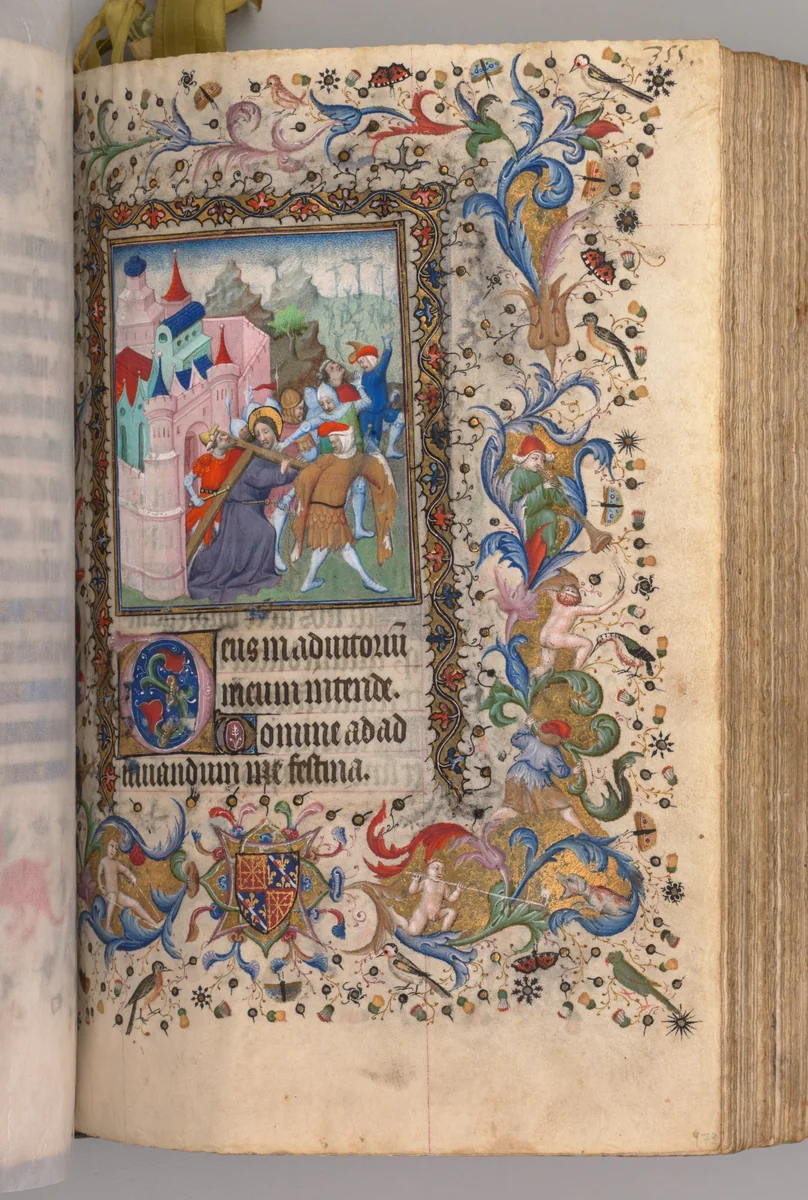 755.
Deus in adiutoriū
meum intende.
Domine ad ad
iuuandum me festina.